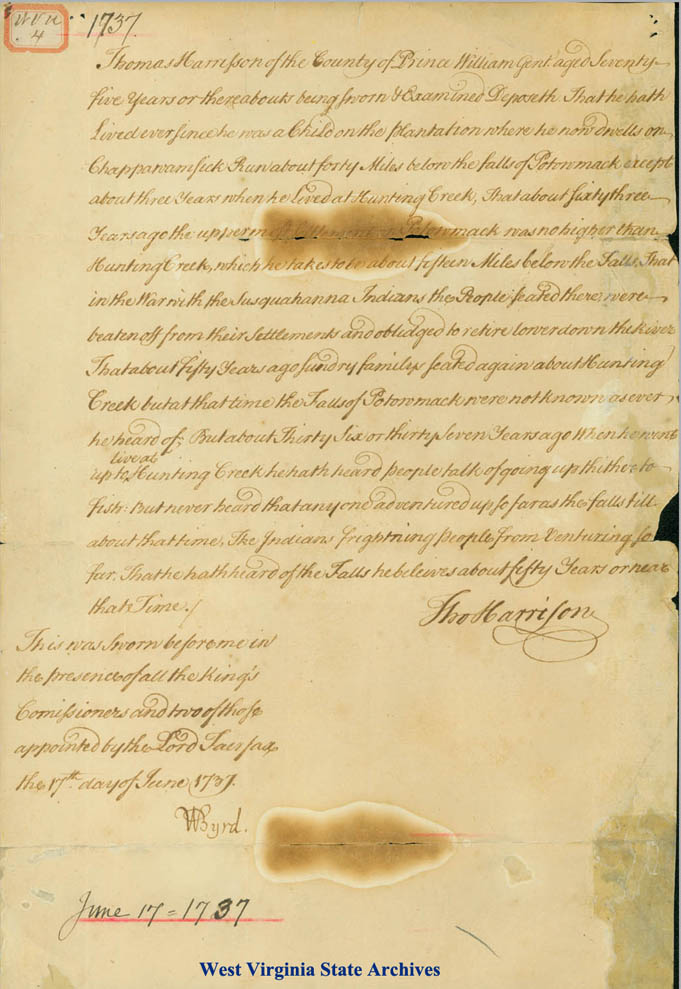 WVU
4
1737.
Thomas Harrisson of the County of Prince William Gent. aged Seventy
five Years or thereabouts being sworn & Examined Deposeth That he hath
Lived ever since he was a Child on the plantation where he now dwells on
Chappawamsick Run about forty Miles below the falls of Potowmack except
about three Years when he lived at Hunting Creek, That about sixty three
Years ago the uppermost Settlement on Potowmack was no higher than
Hunting Creek, which he takes to be about fifteen Miles below the Falls, That
in the War with the Susquahanna Indians the People seated there were
beaten off from their Settlements and oblidged to retire lower down the River
That about fifty Years ago sundry familys seated again about Hunting
Creek but at that time the Falls of Potowmack were not known as ever
he heard of; But about Thirty Six or thirty seven Years ago When he went
live at
up to Hunting Creek he hath heard people talk of going up thither to
fish: But never heard that any one adventured up so far as the falls till
about that time, The Indians frightning people from Venturing so
far, That he hath heard of the Falls he beleives about fifty Years or near
that Time./
Tho Harrison
This was Sworn before me in
the presence of all the King's
Comissioners and two of those
appointed by the Lord Fairfax
the 17th day of June 1737.
WByrd.
June 17 = 1737
West Virginia State Archives